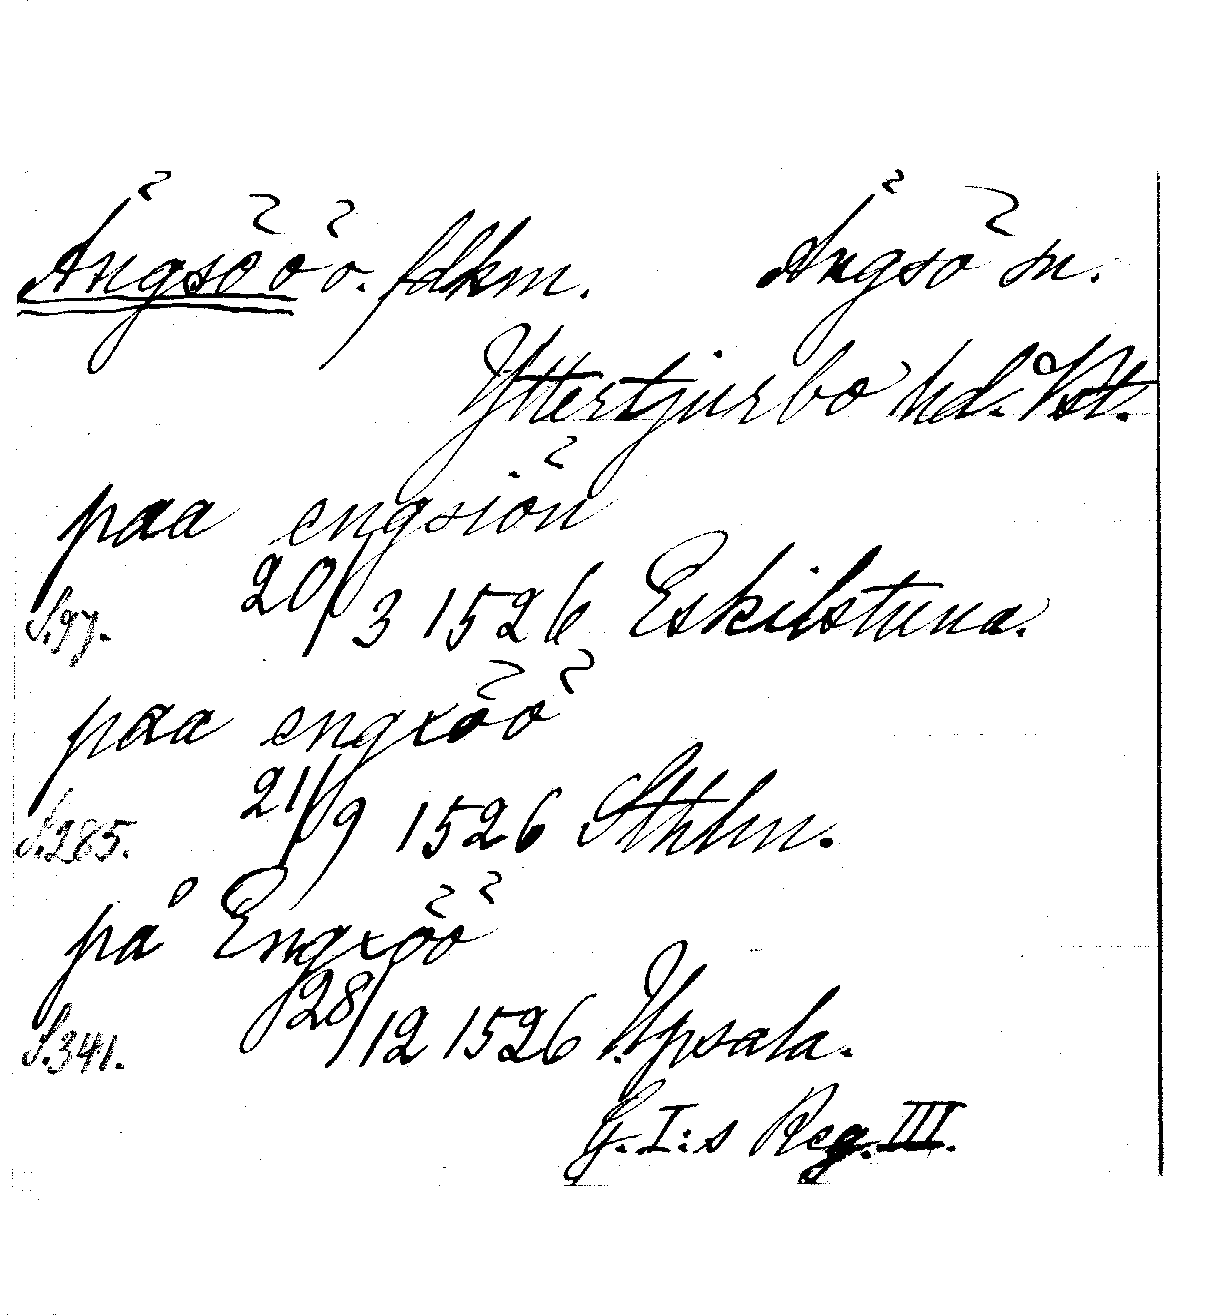 Ängsö ö o. fdkm. Ängsö sn.
Yttertjurbo hd. Vst.
paa engsiön
S.97. 20/3 1526 Eskilstuna.
paa engxöö
S.285. 21/9 1526 Sthlm.
på Engxöö
S.341. 28/12 1526 Upsala.
G. I:s Reg. III.